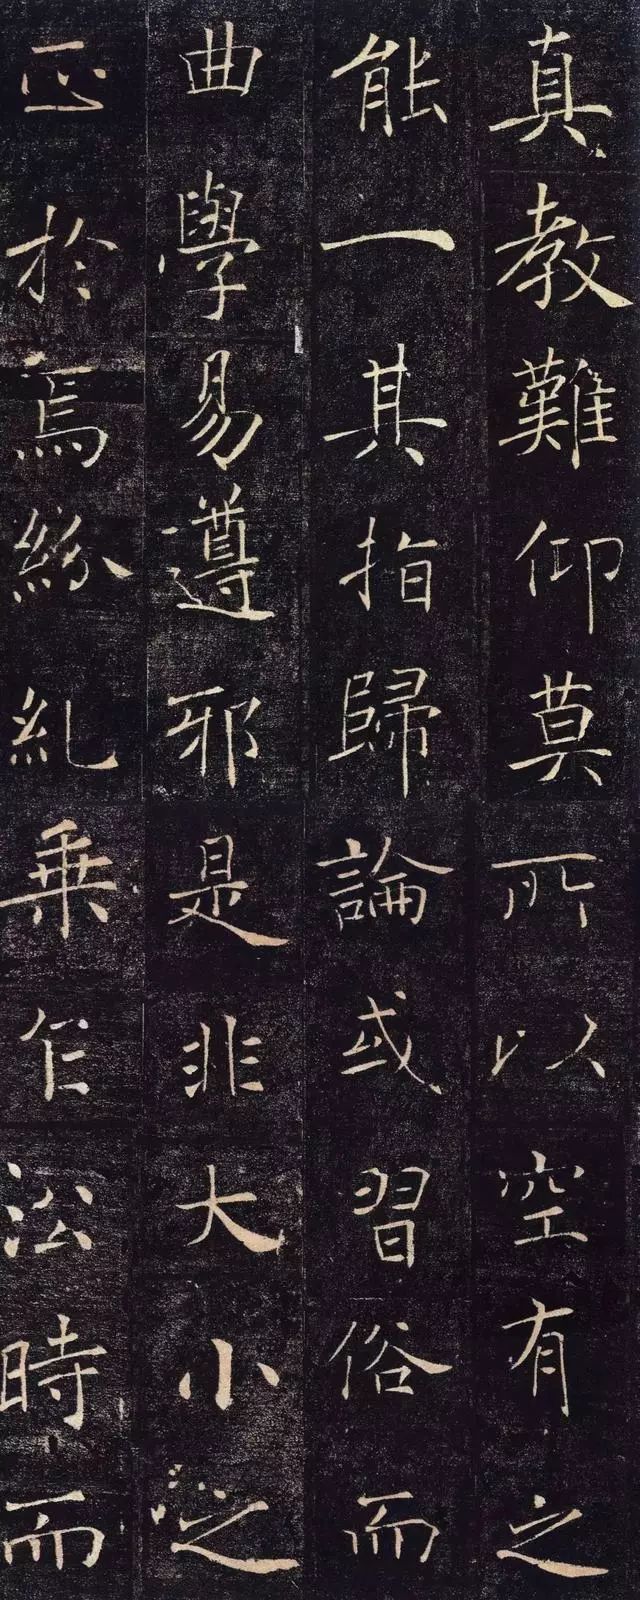 真教難仰莫所以空有之
能一其指歸論或習俗而
曲學易遵邪是非大小之
正於焉紛糺乗乍沿時而